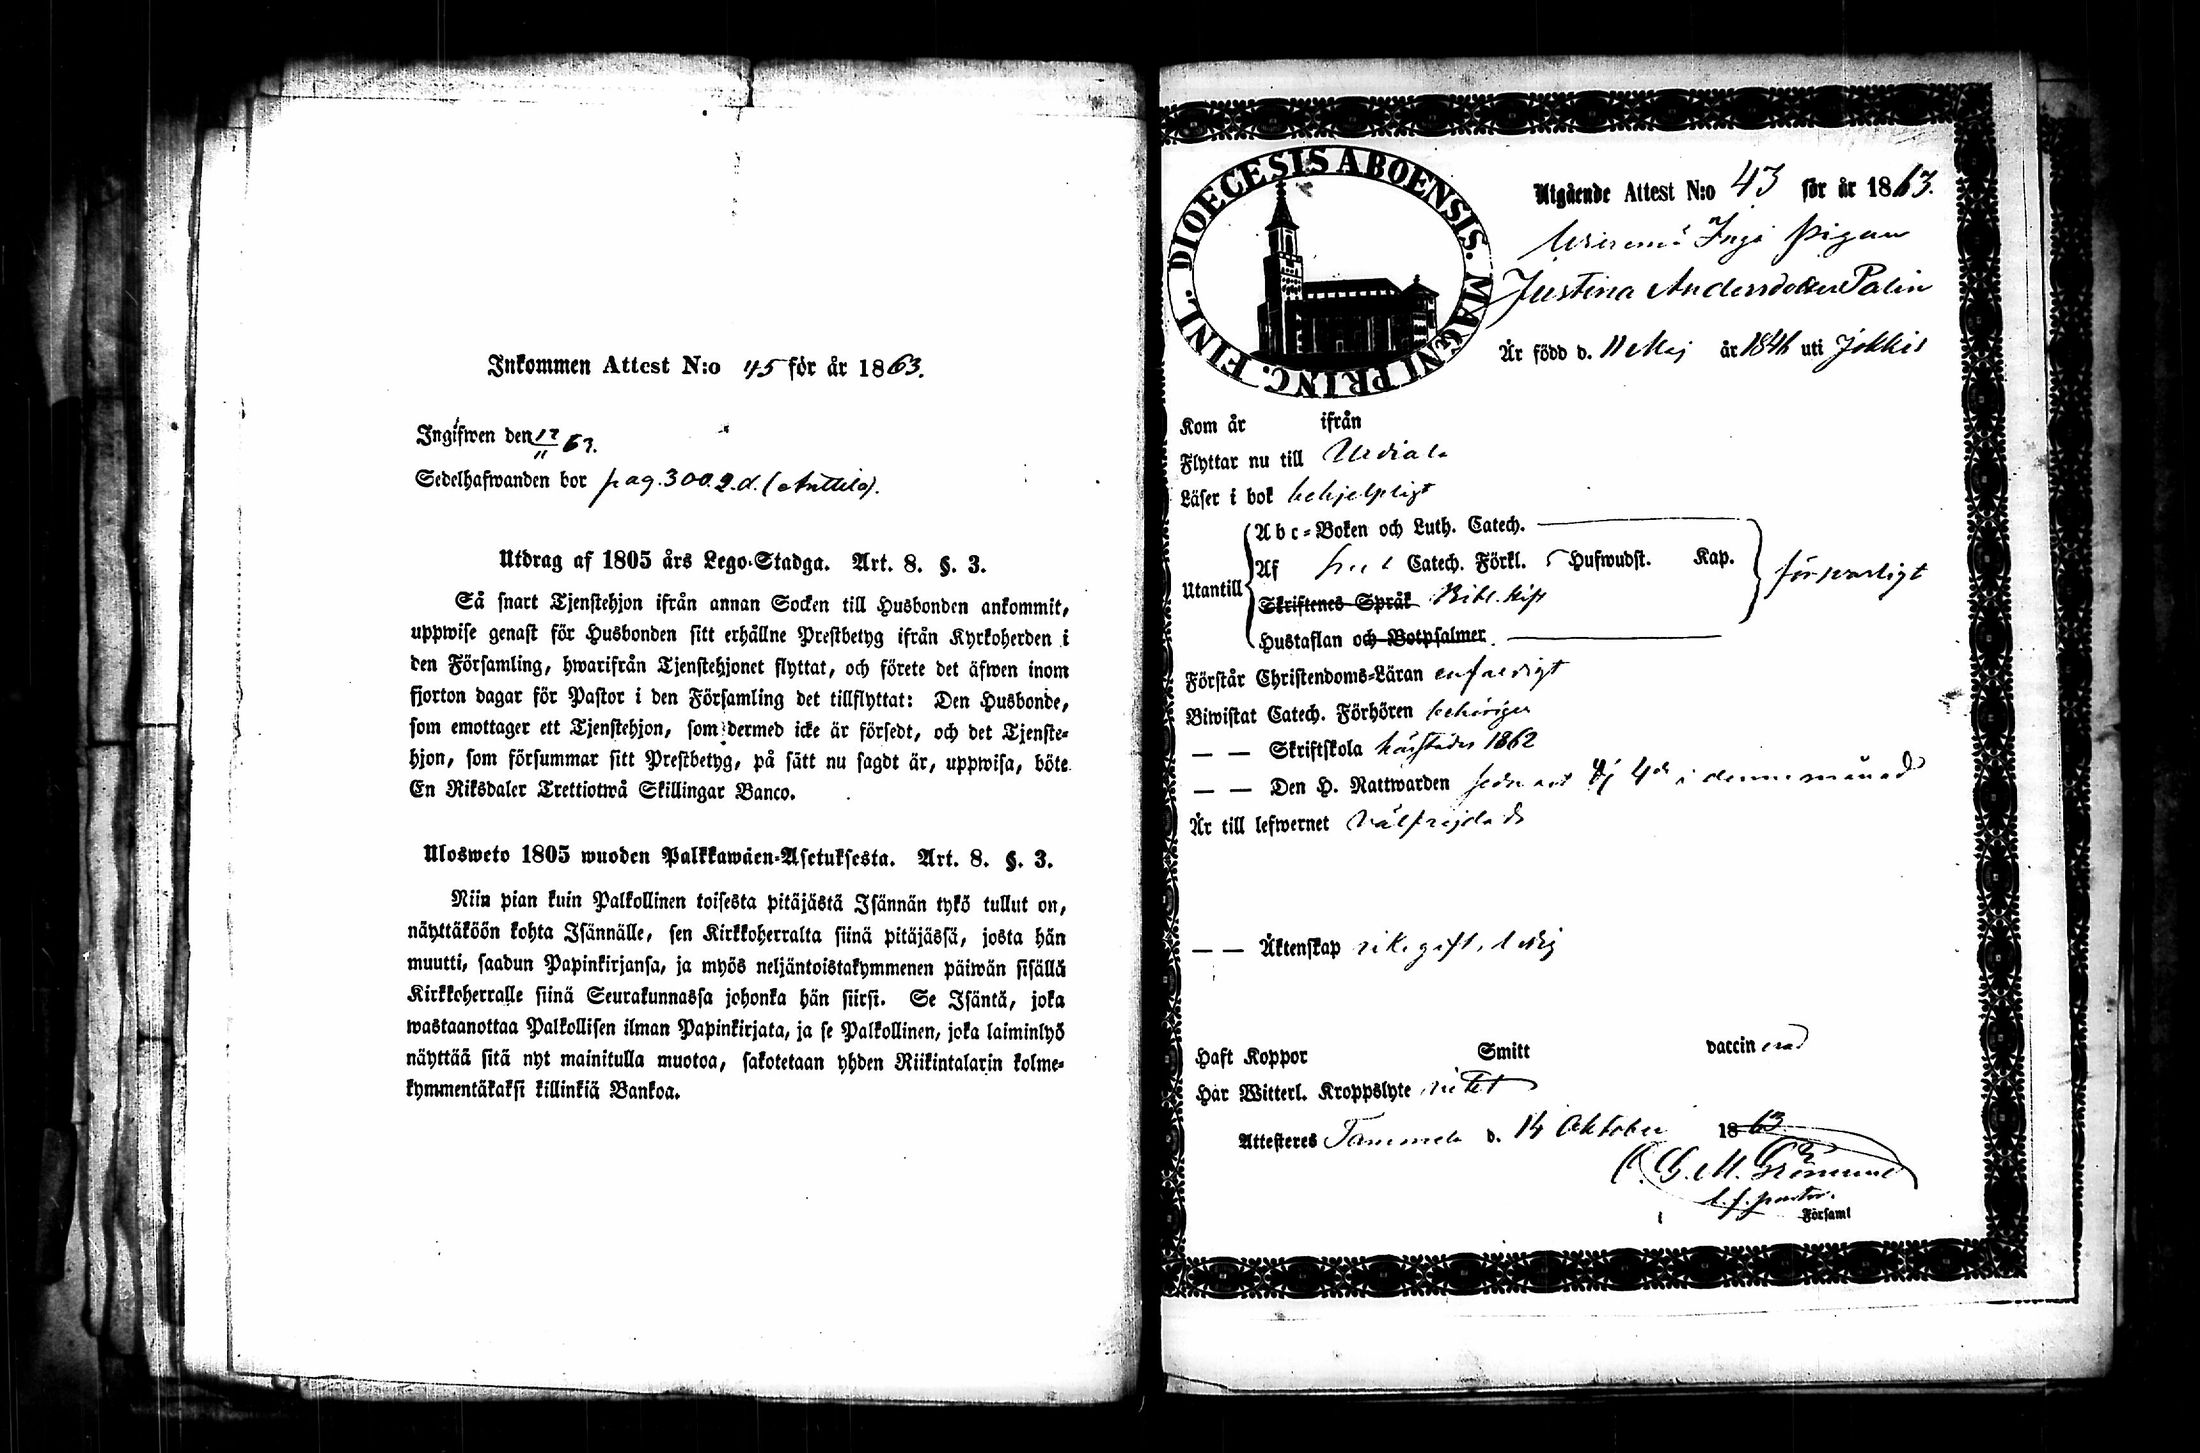 Inkommen Attest N:o 45 för år 1863.
Ingifwen den 12/11 63.
Sedelhafwanden bor pag. 300. 2. d. (Anttila).
Utdrag af 1805 års Lego-Stadga. Art. 8. §. 3.
Så snart Tjenstehjon ifrån annan Socken till Husbonden ankommit,
uppwise genast för Husbonden sitt erhållne Prestbetyg ifrån Kyrkoherden i
den Församling, hwarifrån Tjenstehjonet flyttat, och förete det äfwen inom
fjorton dagar för Pastor i den Församling det tillflyttat: Den Husbonde,
som emottager ett Tjenstehjon, som dermed icke är försedt, och det Tjenste-
hjon, som försummar sitt Prestbetyg, på sätt nu sagdt är, uppwisa, böte
En Riksdaler Trettiotwå Skillingar Banco.
Ulosweto 1805 wuoden Palkkawäen-Asetuksesta. Art. 8. §. 3.
Niin pian kuin Palkollinen toisesta pitäjästä Isännän tykö tullut on,
näyttäköön kohta Isännälle, sen Kirkkoherralta siinä pitäjässä, josta hän
muutti, saadun Papinkirjansa, ja myös neljäntoistakymmenen päiwän sisällä
Kirkkoherralle siinä Seurakunnassa johonka hän siirsi. Se Isäntä, joka
wastaanottaa Palkollisen ilman Papinkirjata, ja se Palkollinen, joka laiminlyö
näyttää sitä nyt mainitulla muotoa, sakotetaan yhden Riikintalarin kolme-
kymmentäkaksi killinkiä Bankoa.
DIOECESIS ABOENSIS. MAGNI PRINC. FINL.
Utgående Attest N:o 43 för år 1863.
Pigan
Justina Andersdotter Palin
Är född d. 11 Maj år 1841 uti Jokkis
Kom år ifrån
Flyttar nu till Urdiala
Läser i bok behjelpligt
Utantill
Abc-Boken och Luth. Catech.
Af Catech. Förkl. 5 Hufwudst. Kap.
försvarligt
Skriftenes Språk Bibl. hist
Hustaflan och Botpsalmer
Förstår Christendoms-Läran enfaldigt
Biwistat Catech. Förhören behörigen
— — Skriftskola hösttiden 1862
— — Den H. Nattwarden i denne månad
Är till lefwernet välfrejdad
— — Äktenskap icke gift, ledig
Haft Koppor Smitt vaccinerad
Har Witterl. Kroppslyte intet
Attesteras Tammela d. 14 Oktober 1863
v. pastor.
Församl